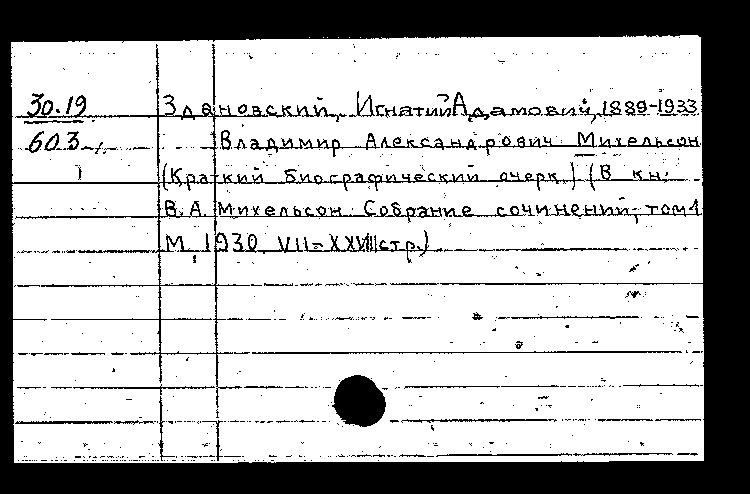 30.19 Здановский, Игнатий Адамович, 1889-1933
603 Владимир Александрович Михельсон
(Краткий биографический очерк) (В кн:
В.А. Михельсон. Собрание сочинений, том 1
М, 1930, VII=XXVIII стр.)